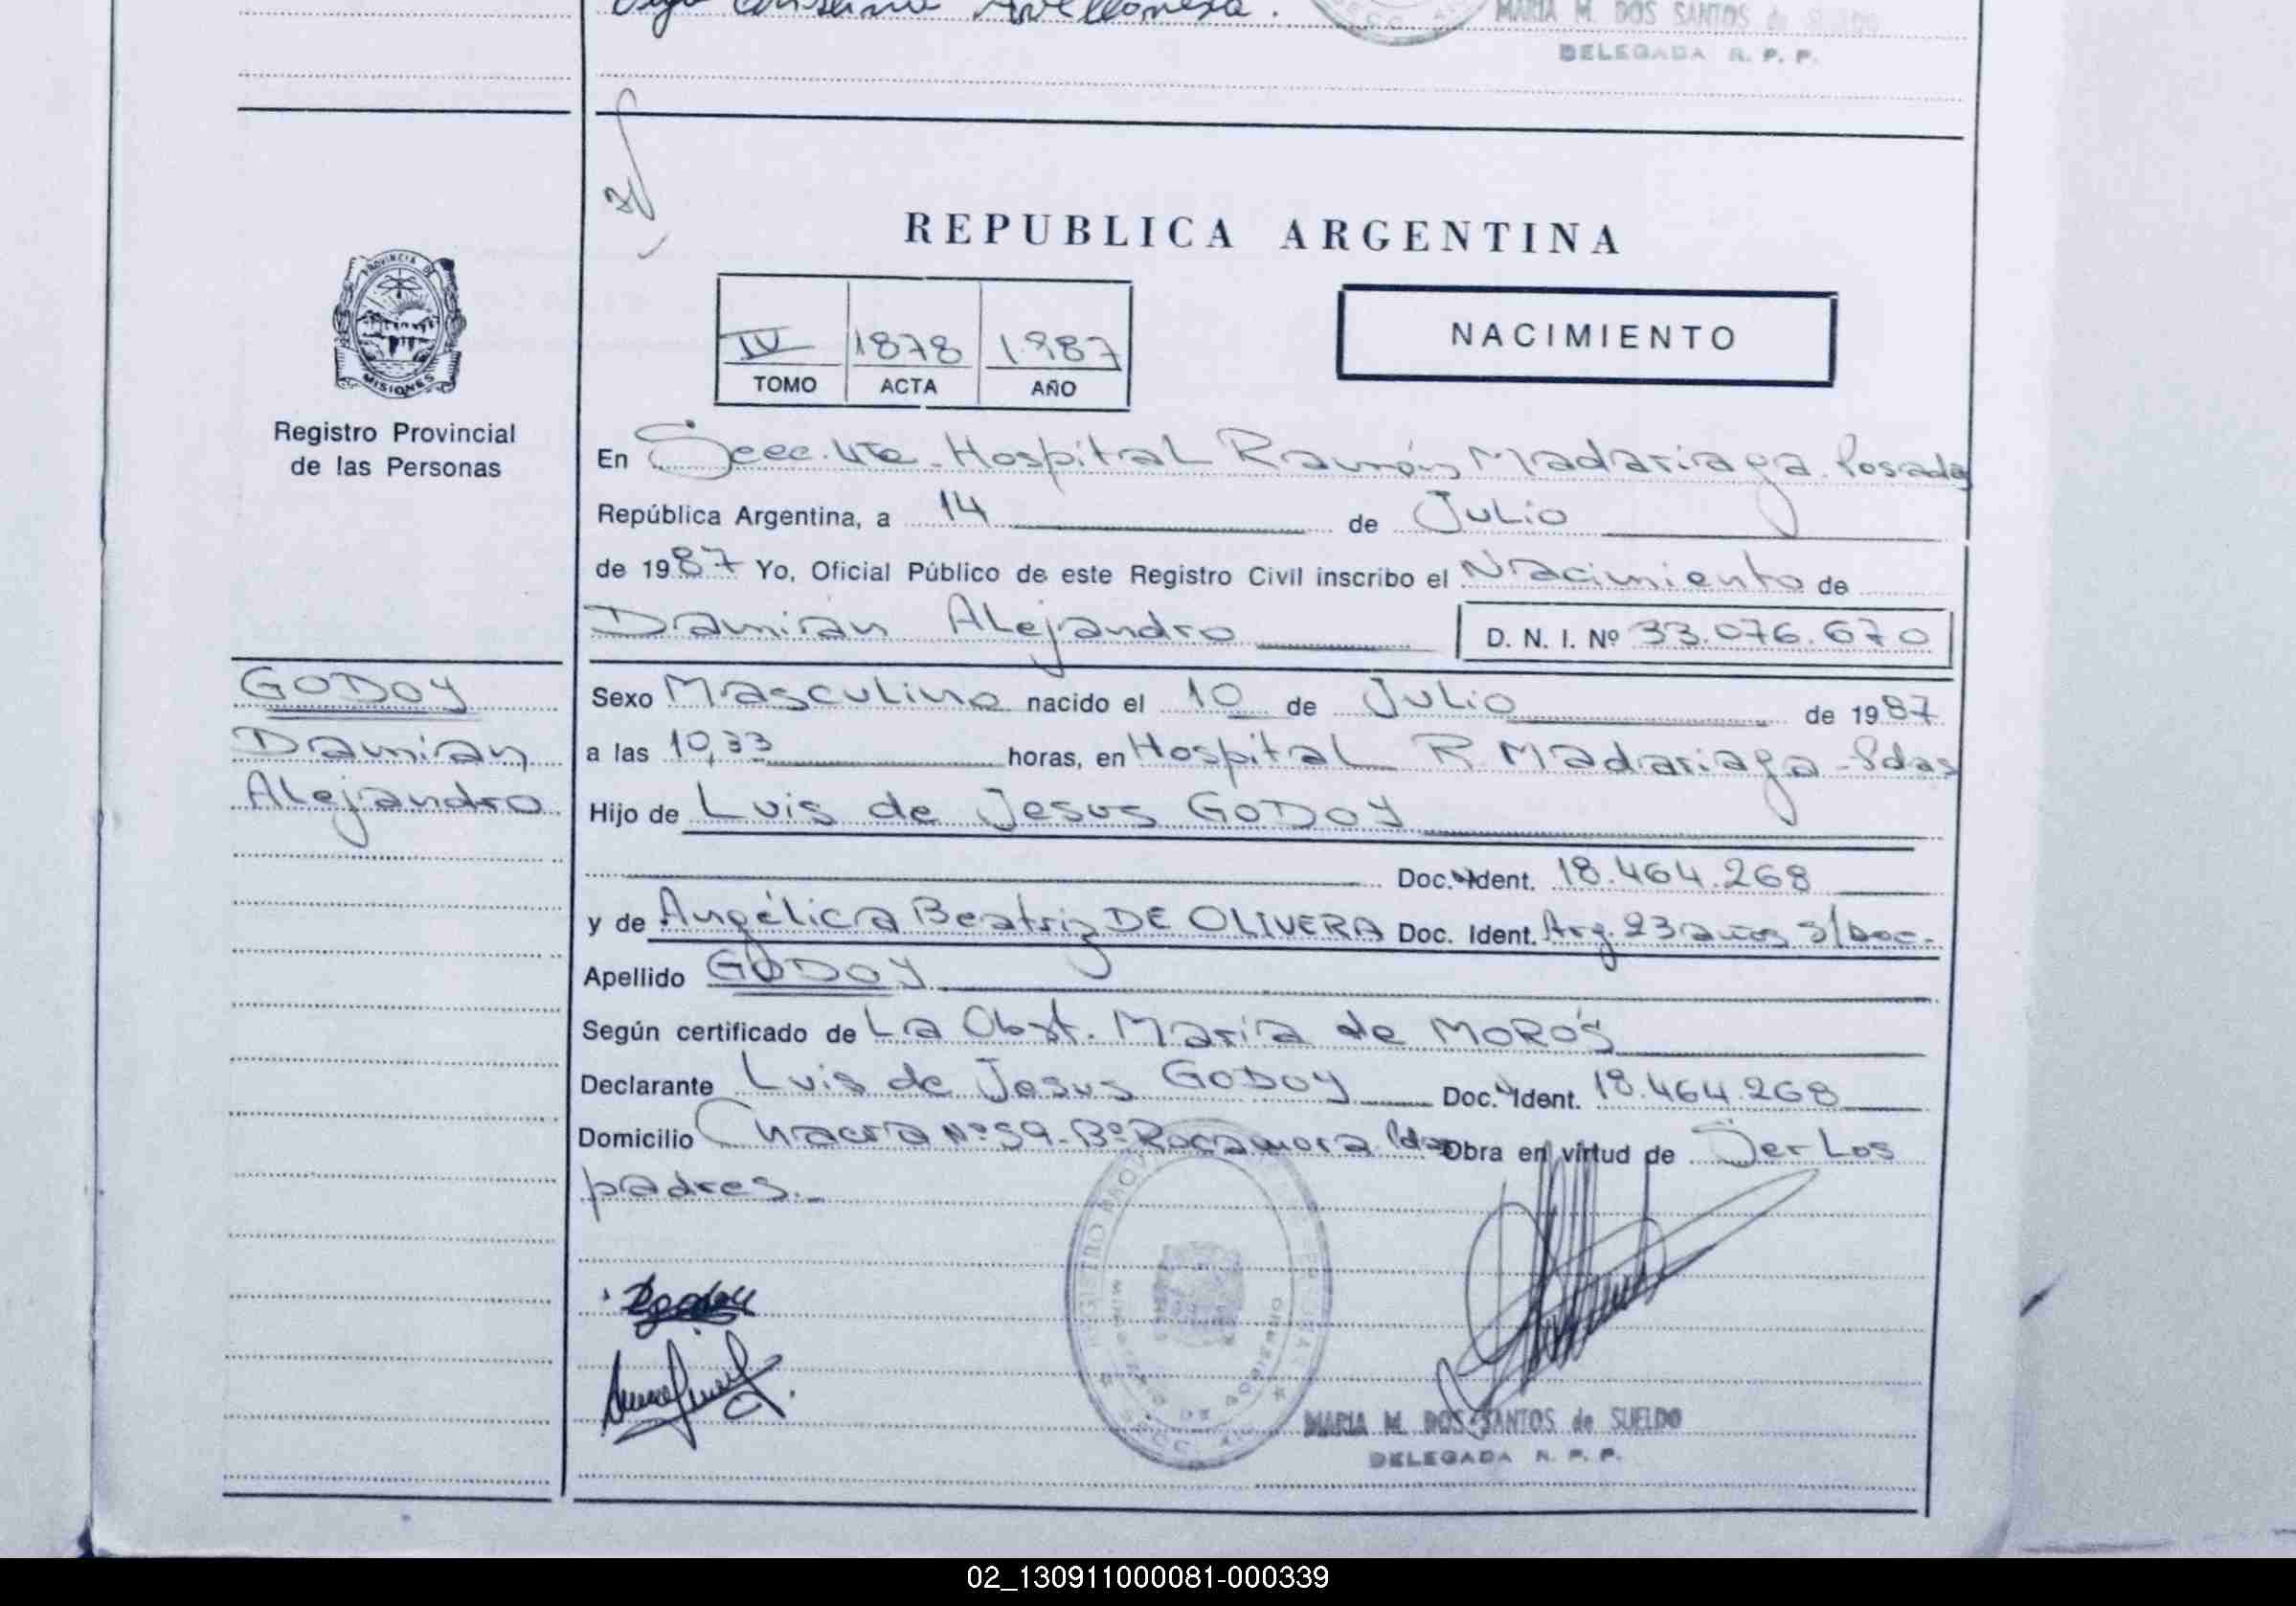 MARIA M. DOS SANTOS de SUELDO
DELEGADA R. P. P.
REPUBLICA ARGENTINA
PROVINCIA DE
MISIONES
Registro Provincial
de las Personas
IV 1878 1987
TOMO ACTA AÑO
NACIMIENTO
En Secc. 4ta. Hospital Ramón Madariaga. Posadas
República Argentina, a 14 de Julio
de 1987 Yo, Oficial Público de este Registro Civil inscribo el Nacimiento de
Damián Alejandro D. N. I. Nº 33.076.670
GODOY
Damián
Alejandro
Sexo Masculino nacido el 10 de Julio de 1987
a las 10,33 horas, en Hospital R. Madariaga - Pdas
Hijo de Luis de Jesus GODOY
Doc. Ident. 18.464.268
y de Angélica Beatriz DE OLIVERA Doc. Ident. Arg. 23 años s/Doc.-
Apellido GODOY
Según certificado de La Obst. María de MOROS
Declarante Luis de Jesus GODOY Doc. Ident. 18.464.268
Domicilio Chacra Nº 59 - Bº Rocamora. Pdas Obra en virtud de Ser Los
padres.-
MARIA M. DOS SANTOS de SUELDO
DELEGADA R. P. P.
02_130911000081-000339